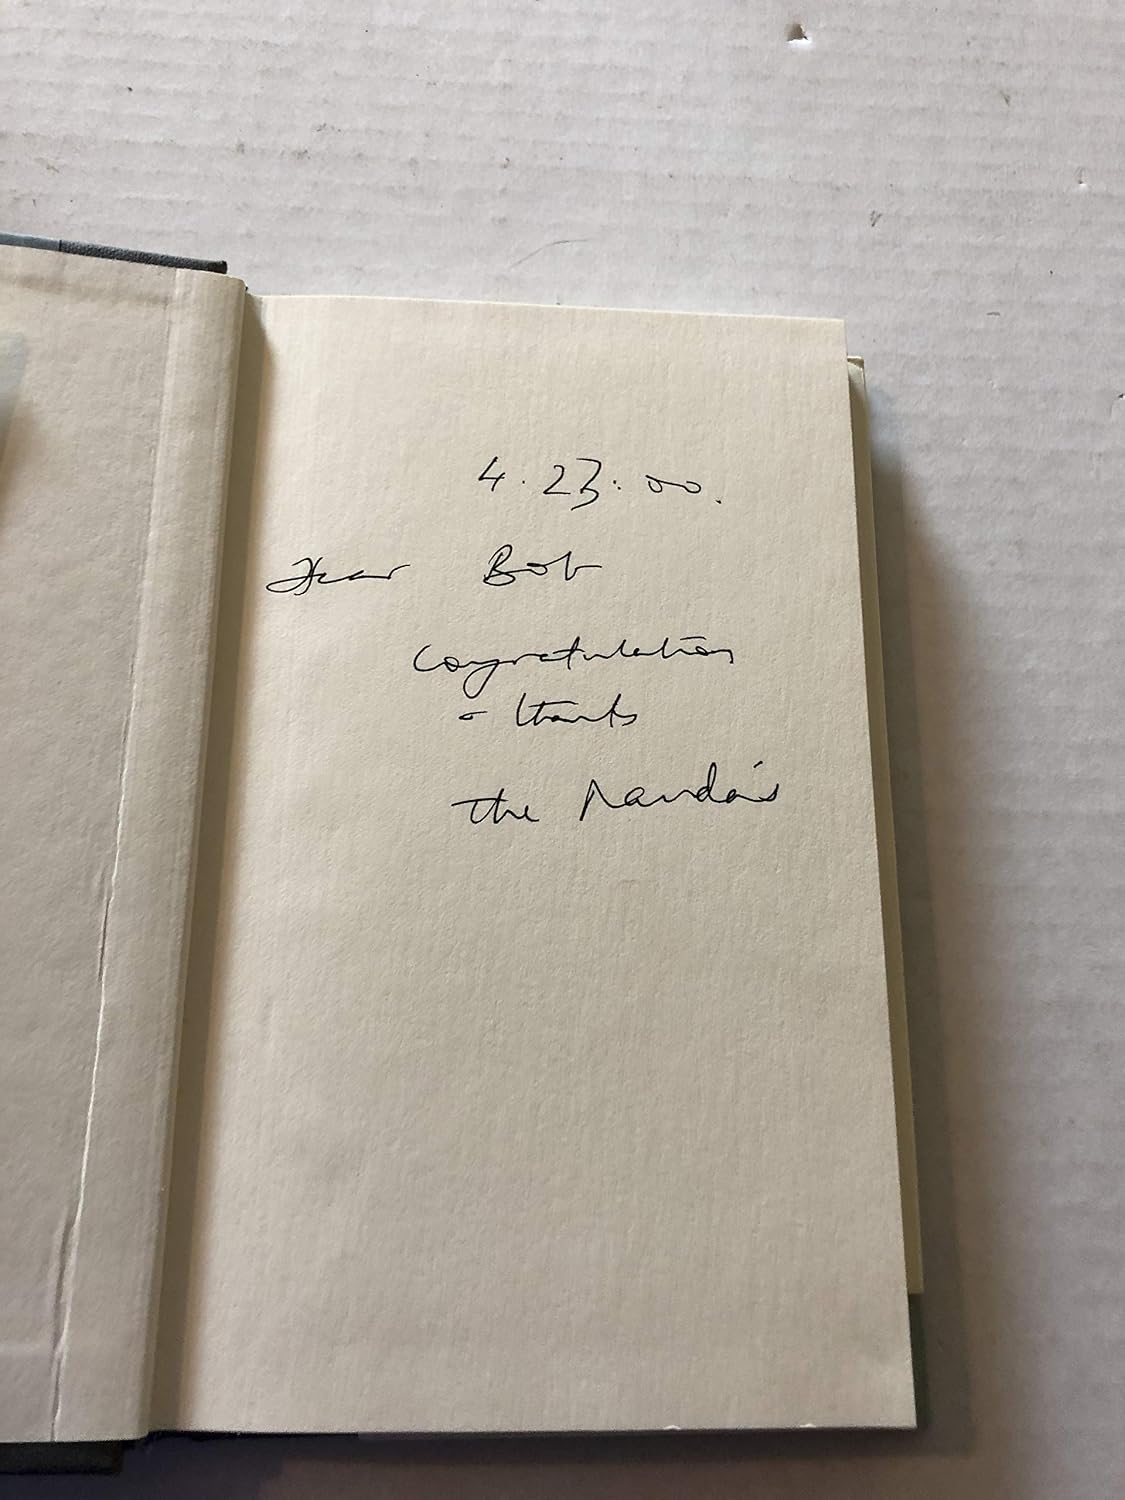 4.23.00.
Dear Bob
Congratulations
- thanks
The Nanda's